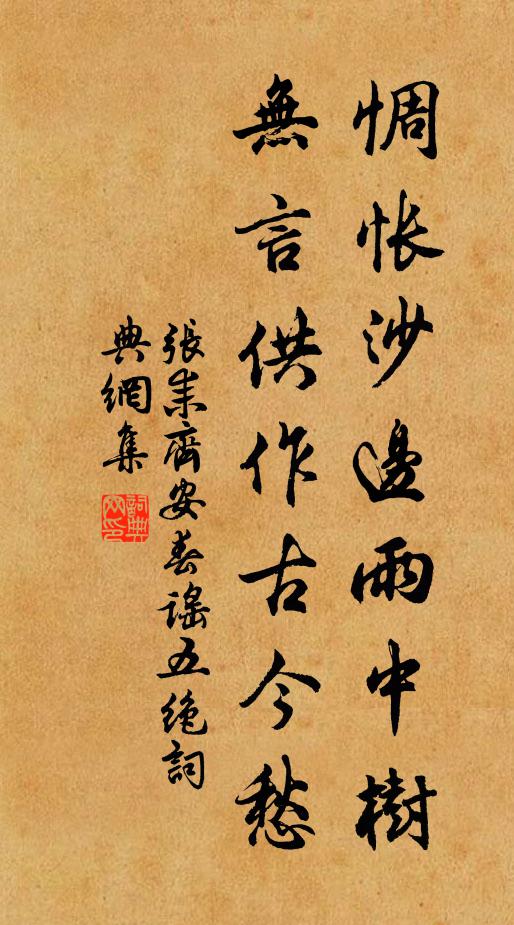 惆悵沙邊雨中樹
無言供作古今愁
張耒齊安春謠五絶詞
典網集
詞典网印